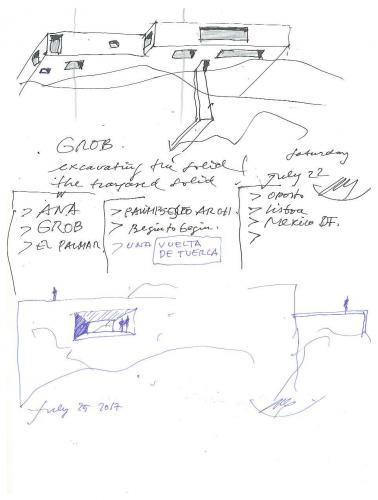 GROB.
excavating the solid
the trapped solid
Saturday
July 22
> ANA
> GROB
> EL PALMAR
> PALIMPSESTO ARQI.
> Begin to begin.
> UNA VUELTA
DE TUERCA
> Oporto
> Lisboa
> Mexico DF.
>
July 25 2017